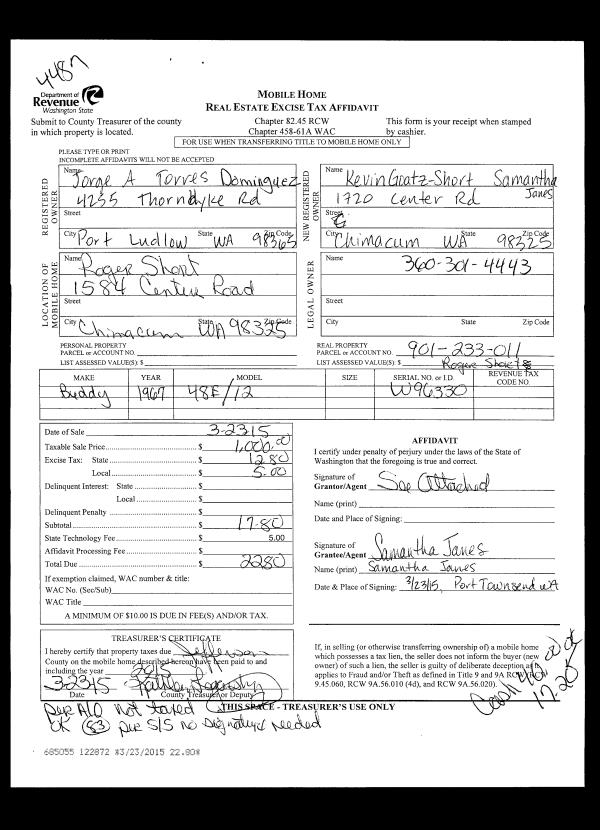 4487
Department of
Revenue
Washington State
MOBILE HOME
REAL ESTATE EXCISE TAX AFFIDAVIT
Submit to County Treasurer of the county
in which property is located.
Chapter 82.45 RCW
Chapter 458-61A WAC
This form is your receipt when stamped
by cashier.
FOR USE WHEN TRANSFERRING TITLE TO MOBILE HOME ONLY
PLEASE TYPE OR PRINT
INCOMPLETE AFFIDAVITS WILL NOT BE ACCEPTED
REGISTERED OWNER
Name Jorge A Torres Dominguez
4255 Thorndyke Rd
Street
City Port Ludlow State WA Zip Code 98365
NEW REGISTERED OWNER
Name Kevin Goatz-Short Samantha Janes
1720 Center Rd
Street
City Chimacum State WA Zip Code 98325
LOCATION OF MOBILE HOME
Name Roger Short
1584 Center Road
Street
City Chimacum State WA Zip Code 98325
LEGAL OWNER
Name 360-301-4443
Street
City State Zip Code
PERSONAL PROPERTY
PARCEL or ACCOUNT NO.
LIST ASSESSED VALUE(S): $
REAL PROPERTY
PARCEL or ACCOUNT NO. 901-233-011
LIST ASSESSED VALUE(S): $ Roger Short
MAKE YEAR MODEL SIZE SERIAL NO. or I.D. REVENUE TAX CODE NO.
Buddy 1967 48E/12 W96330
Date of Sale 3-23-15
Taxable Sale Price $ 1,000.00
Excise Tax: State $ 12.80
Local $ 5.00
Delinquent Interest: State $
Local $
Delinquent Penalty $
Subtotal $ 17.80
State Technology Fee $ 5.00
Affidavit Processing Fee $
Total Due $ 22.80
If exemption claimed, WAC number & title:
WAC No. (Sec/Sub)
WAC Title
A MINIMUM OF $10.00 IS DUE IN FEE(S) AND/OR TAX.
AFFIDAVIT
I certify under penalty of perjury under the laws of the State of
Washington that the foregoing is true and correct.
Signature of
Grantor/Agent See Attached
Name (print)
Date and Place of Signing:
Signature of
Grantee/Agent Samantha Janes
Name (print) Samantha Janes
Date & Place of Signing: 3/23/15, Port Townsend WA
TREASURER'S CERTIFICATE
I hereby certify that property taxes due Jefferson
County on the mobile home described hereon have been paid to and
including the year 2015
3-23-15
Date County Treasurer or Deputy
If, in selling (or otherwise transferring ownership of) a mobile home
which possesses a tax lien, the seller does not inform the buyer (new
owner) of such a lien, the seller is guilty of deliberate deception as
applies to Fraud and/or Theft as defined in Title 9 and 9A RCW (RCW
9.45.060, RCW 9A.56.010 (4d), and RCW 9A.56.020).
THIS SPACE - TREASURER'S USE ONLY
per A/O not taxed
OK (83) per S/S no signature needed
685055 122872 *3/23/2015 22.80*